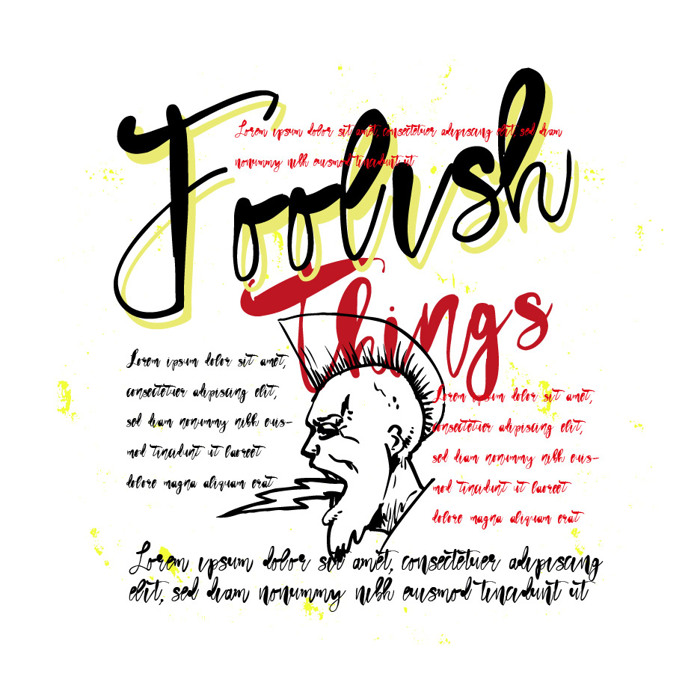 Foolish
Lorem ipsum dolor sit amet, consectetuer adipiscing elit, sed diam
nonummy nibh euismod tincidunt ut
Things
Lorem ipsum dolor sit amet,
consectetuer adipiscing elit,
sed diam nonummy nibh euis-
mod tincidunt ut laoreet
dolore magna aliquam erat
Lorem ipsum dolor sit amet,
consectetuer adipiscing elit,
sed diam nonummy nibh euis-
mod tincidunt ut laoreet
dolore magna aliquam erat
Lorem ipsum dolor sit amet, consectetuer adipiscing
elit, sed diam nonummy nibh euismod tincidunt ut